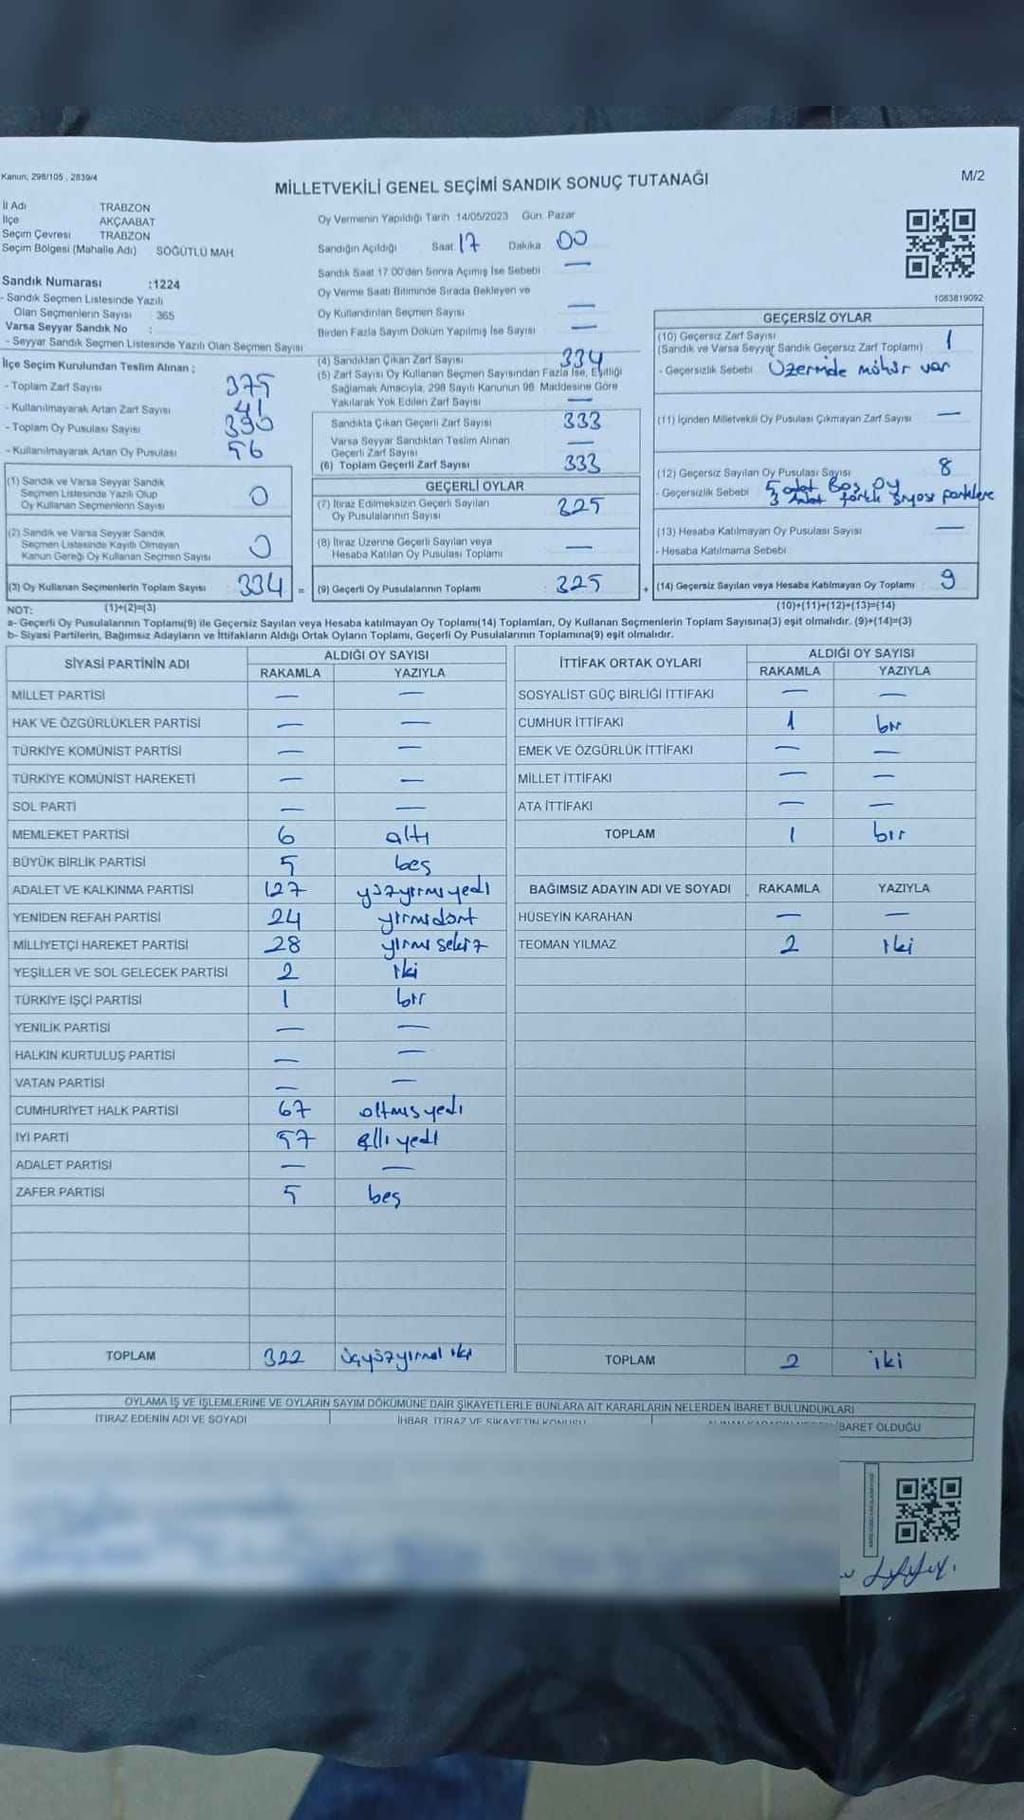 Kanun: 298/105 , 2839/4
MİLLETVEKİLİ GENEL SEÇİMİ SANDIK SONUÇ TUTANAĞI
M/2
İl Adı TRABZON
İlçe AKÇAABAT
Seçim Çevresi TRABZON
Seçim Bölgesi (Mahalle Adı) SÖĞÜTLÜ MAH.
Sandık Numarası :1224
- Sandık Seçmen Listesinde Yazılı
Olan Seçmenlerin Sayısı : 365
Varsa Seyyar Sandık No :
- Seyyar Sandık Seçmen Listesinde Yazılı Olan Seçmen Sayısı
Oy Vermenin Yapıldığı Tarih :14/05/2023 Gün: Pazar
Sandığın Açıldığı Saat: 17 Dakika 00
Sandık Saat 17.00'den Sonra Açılmış İse Sebebi —
Oy Verme Saati Bitiminde Sırada Bekleyen ve
Oy Kullandırılan Seçmen Sayısı —
Birden Fazla Sayım Döküm Yapılmış İse Sayısı —
1083819092
İlçe Seçim Kurulundan Teslim Alınan ;
- Toplam Zarf Sayısı 375
- Kullanılmayarak Artan Zarf Sayısı 41
- Toplam Oy Pusulası Sayısı 390
- Kullanılmayarak Artan Oy Pusulası 56
(1) Sandık ve Varsa Seyyar Sandık
Seçmen Listesinde Yazılı Olup
Oy Kullanan Seçmenlerin Sayısı 0
(2) Sandık ve Varsa Seyyar Sandık
Seçmen Listesinde Kayıtlı Olmayan
Kanun Gereği Oy Kullanan Seçmen Sayısı 0
(3) Oy Kullanan Seçmenlerin Toplam Sayısı 334 =
(4) Sandıktan Çıkan Zarf Sayısı 334
(5) Zarf Sayısı Oy Kullanan Seçmen Sayısından Fazla İse, Eşitliği
Sağlamak Amacıyla, 298 Sayılı Kanunun 98. Maddesine Göre
Yakılarak Yok Edilen Zarf Sayısı —
Sandıkta Çıkan Geçerli Zarf Sayısı 333
Varsa Seyyar Sandıktan Teslim Alınan
Geçerli Zarf Sayısı —
(6) Toplam Geçerli Zarf Sayısı 333
GEÇERLİ OYLAR
(7) İtiraz Edilmeksizin Geçerli Sayılan
Oy Pusulalarının Sayısı 325
(8) İtiraz Üzerine Geçerli Sayılan veya
Hesaba Katılan Oy Pusulası Toplamı —
(9) Geçerli Oy Pusulalarının Toplamı 325 +
GEÇERSİZ OYLAR
(10) Geçersiz Zarf Sayısı 1
(Sandık ve Varsa Seyyar Sandık Geçersiz Zarf Toplamı)
- Geçersizlik Sebebi Üzerinde mühür var
(11) İçinden Milletvekili Oy Pusulası Çıkmayan Zarf Sayısı —
(12) Geçersiz Sayılan Oy Pusulası Sayısı 8
- Geçersizlik Sebebi 5 adet Boş Oy
3 adet farklı siyasi partilere
(13) Hesaba Katılmayan Oy Pusulası Sayısı —
- Hesaba Katılmama Sebebi
(14) Geçersiz Sayılan veya Hesaba Katılmayan Oy Toplamı 9
NOT: (1)+(2)=(3) (10)+(11)+(12)+(13)=(14)
a- Geçerli Oy Pusulalarının Toplamı(9) ile Geçersiz Sayılan veya Hesaba katılmayan Oy Toplamı(14) Toplamları, Oy Kullanan Seçmenlerin Toplam Sayısına(3) eşit olmalıdır. (9)+(14)=(3)
b- Siyasi Partilerin, Bağımsız Adayların ve İttifakların Aldığı Ortak Oyların Toplamı, Geçerli Oy Pusulalarının Toplamına(9) eşit olmalıdır.
SİYASİ PARTİNİN ADI ALDIĞI OY SAYISI
RAKAMLA YAZIYLA
MİLLET PARTİSİ — —
HAK VE ÖZGÜRLÜKLER PARTİSİ — —
TÜRKİYE KOMÜNİST PARTİSİ — —
TÜRKİYE KOMÜNİST HAREKETİ — —
SOL PARTİ — —
MEMLEKET PARTİSİ 6 altı
BÜYÜK BİRLİK PARTİSİ 5 beş
ADALET VE KALKINMA PARTİSİ 127 yüzyirmiyedi
YENİDEN REFAH PARTİSİ 24 yirmidört
MİLLİYETÇİ HAREKET PARTİSİ 28 yirmi sekiz
YEŞİLLER VE SOL GELECEK PARTİSİ 2 iki
TÜRKİYE İŞÇİ PARTİSİ 1 bir
YENİLİK PARTİSİ — —
HALKIN KURTULUŞ PARTİSİ — —
VATAN PARTİSİ — —
CUMHURİYET HALK PARTİSİ 67 altmışyedi
İYİ PARTİ 57 elli yedi
ADALET PARTİSİ — —
ZAFER PARTİSİ 5 beş
TOPLAM 322 üçyüzyirmi iki
İTTİFAK ORTAK OYLARI ALDIĞI OY SAYISI
RAKAMLA YAZIYLA
SOSYALİST GÜÇ BİRLİĞİ İTTİFAKI — —
CUMHUR İTTİFAKI 1 bir
EMEK VE ÖZGÜRLÜK İTTİFAKI — —
MİLLET İTTİFAKI — —
ATA İTTİFAKI — —
TOPLAM 1 bir
BAĞIMSIZ ADAYIN ADI VE SOYADI RAKAMLA YAZIYLA
HÜSEYİN KARAHAN — —
TEOMAN YILMAZ 2 iki
TOPLAM 2 iki
OYLAMA İŞ VE İŞLEMLERİNE VE OYLARIN SAYIM DÖKÜMÜNE DAİR ŞİKAYETLERLE BUNLARA AİT KARARLARIN NELERDEN İBARET BULUNDUKLARI
İTİRAZ EDENİN ADI VE SOYADI İHBAR, İTİRAZ VE ŞİKAYETİN KONUSU İBARET OLDUĞU